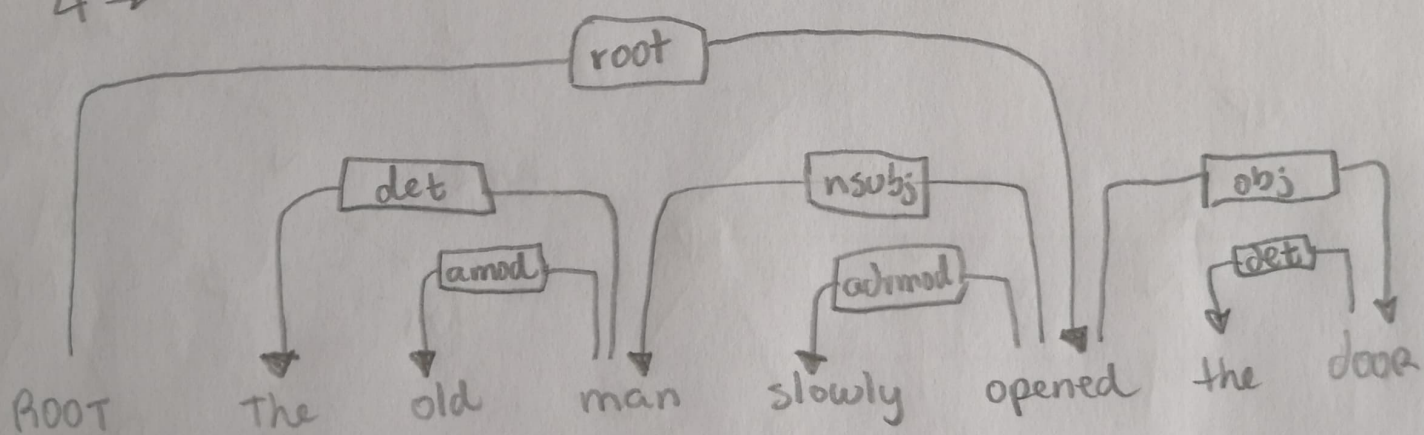 4 →
root
det nsubj obj
amod advmod det
ROOT The old man slowly opened the door